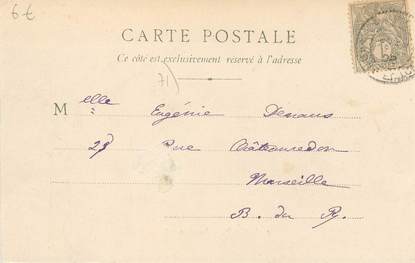 6 €
CARTE POSTALE
Ce côté est exclusivement réservé à l'adresse
71)
Melle Eugénie Denans
27 Rue Châteauredon
Marseille
B. du R.